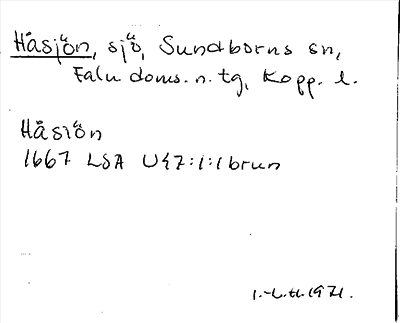 Håsjön, sjö, Sundborns sn,
Falu doms. n. tg, Kopp. l.
Håsiön
1667 LSA U47:1:1 brun
1971.